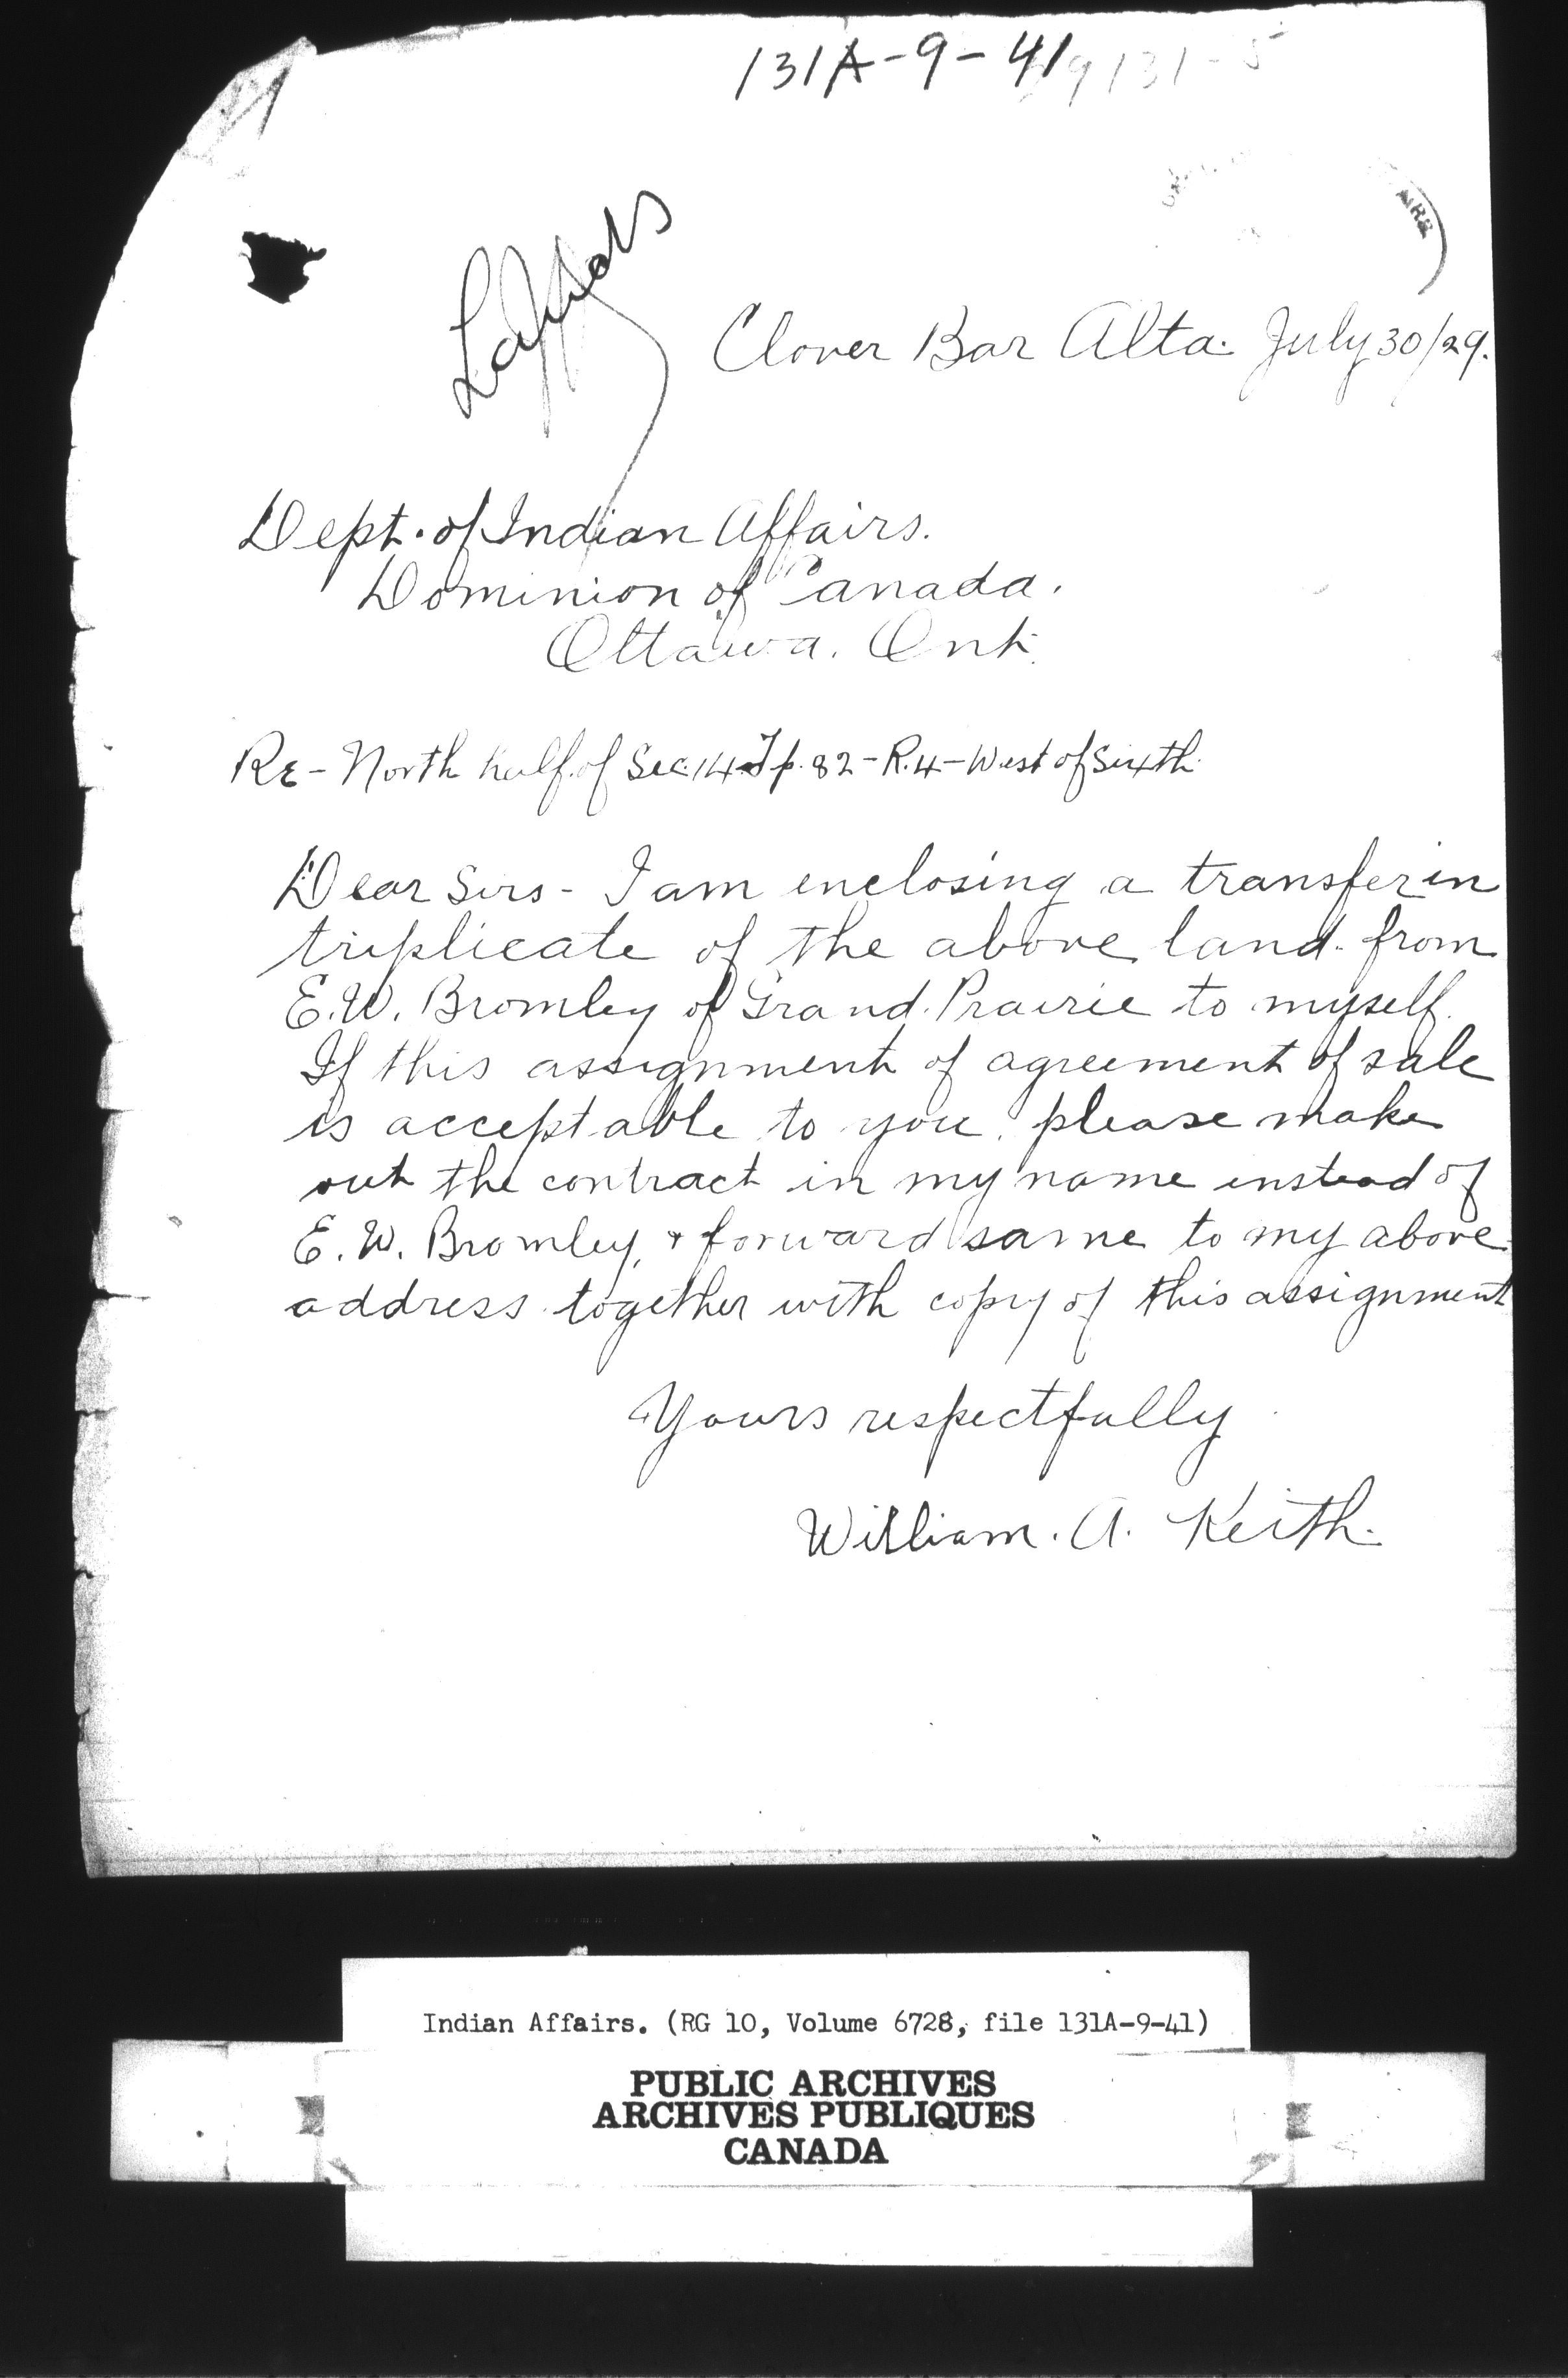 131A-9-41 9131-5
AIRS
Clover Bar Alta. July 30/29.
Dept. of Indian Affairs.
Dominion of Canada.
Ottawa. Ont.
Re - North half of Sec. 14 - Tp. 82 - R. 4 - West of Sixth.
Dear Sirs - I am enclosing a transfer in
triplicate of the above land from
E. W. Bromley of Grand Prairie to myself.
If this assignment of agreement of sale
is acceptable to you, please make
out the contract in my name instead of
E. W. Bromley, & forward same to my above
address together with copy of this assignment
Yours respectfully
William. A. Keith.
Indian Affairs. (RG 10, Volume 6728, file 131A-9-41)
PUBLIC ARCHIVES
ARCHIVES PUBLIQUES
CANADA